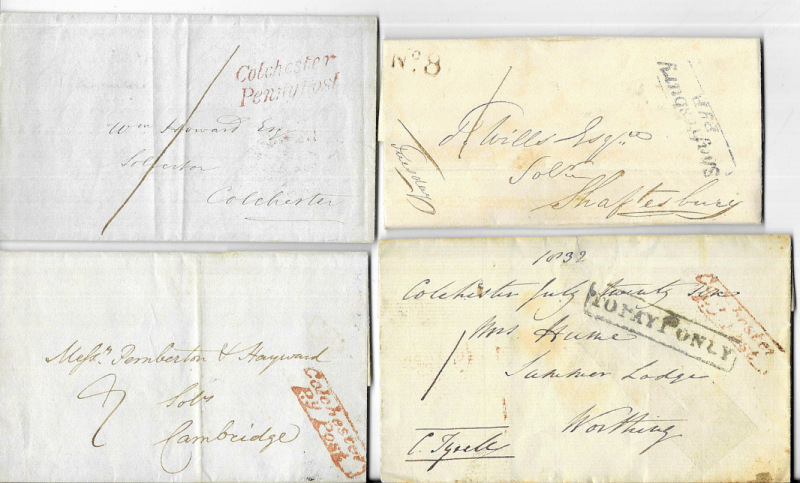 Colchester
Penny Post
Wm Howard Esqr
Solicitor
Colchester
No. 8
1
Shaftesbury
P.P.
Tuesday
J. Wills Esqre
Solr
Shaftesbury
Messrs Pemberton & Hayward
Solrs
Cambridge
Colchester
Py Post
1832
Colchester July twenty
Mrs Hume
Summer Lodge
Worthing
C. Tyrell
TO PAY 1d ONLY
Colchester